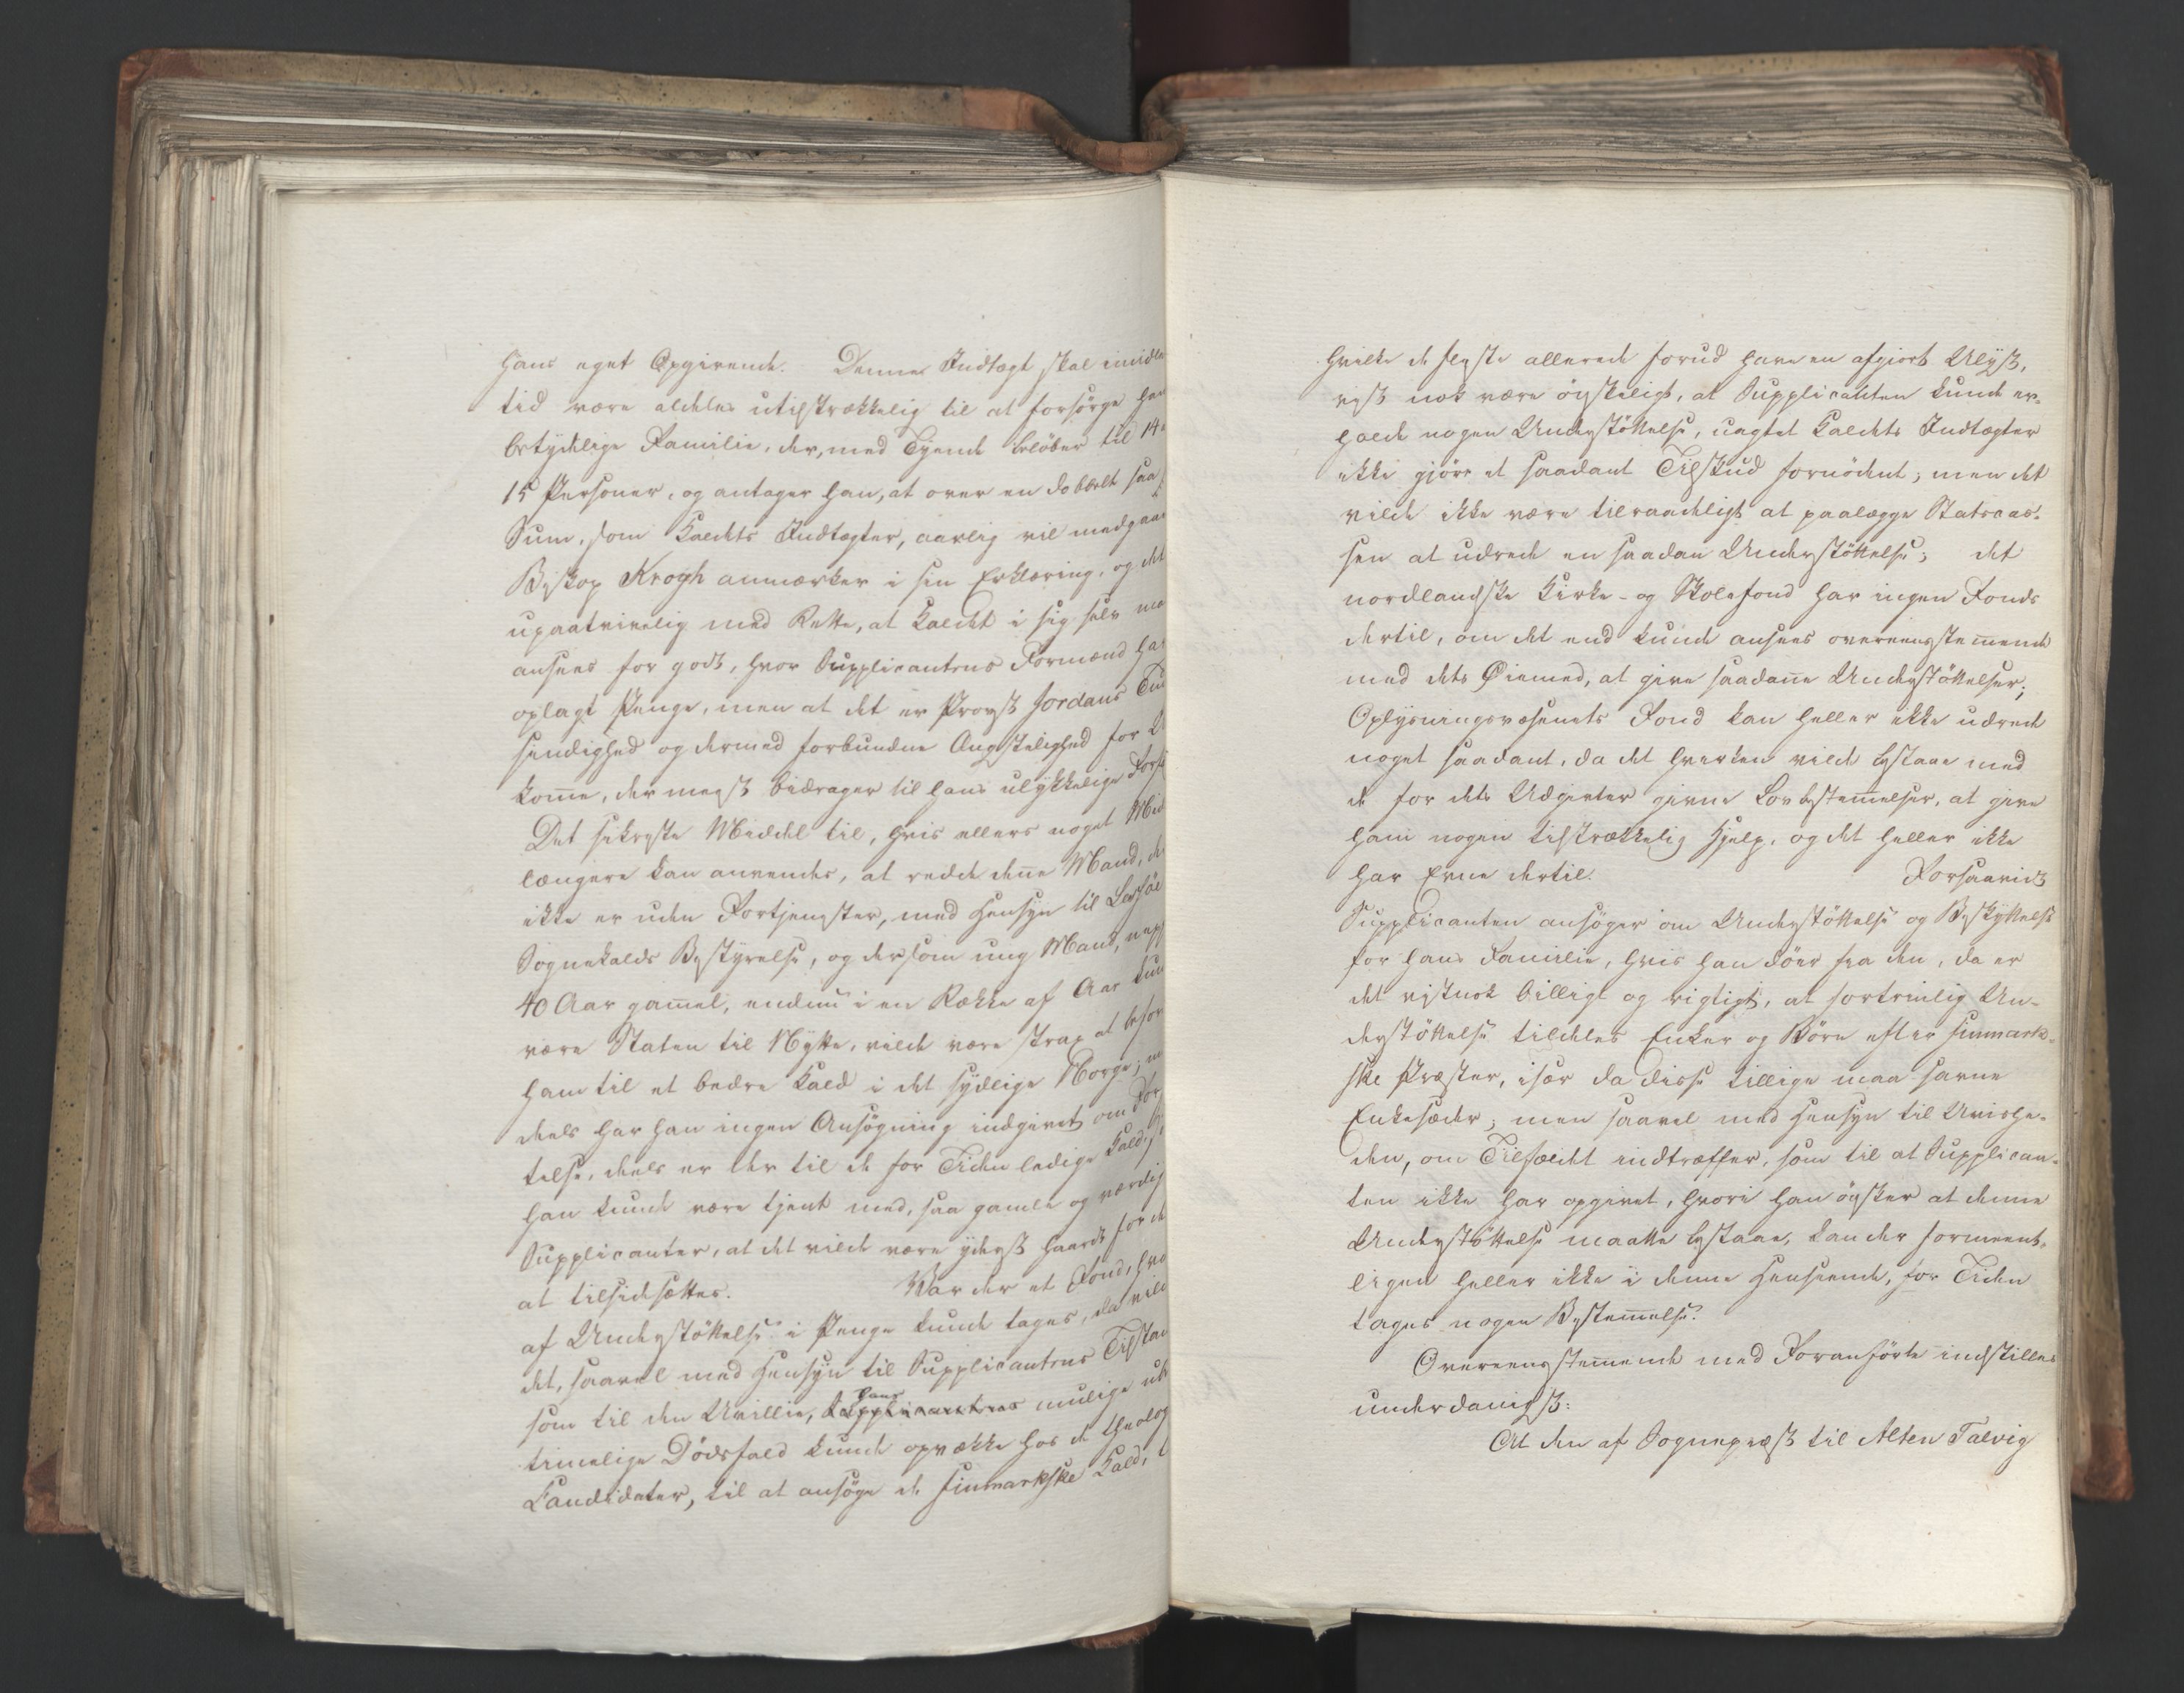 Hans eget Opgivende. Denne Indtægt skal imidler
tid være aldeles utilstrækkelig til at forsørge hans
betydelige Familie, der, med Tyende beløber til 14 a
15 Personer, og antager han, at over en dobbelt saa
Sum, som Kaldets Indtægter, aarlig vil medgaae
Biskop Krogh anmærker i sin Erklæring, og det
upaatvivelig med Rette, at Kaldet i sig selv maa
ansees for godt, hvor Supplicantens Formænd har
oplagt Penge, men at det er Provst Jordans Tung
sindighed og dermed forbundne Ængstelighed for Ud
kom̄e, der mest bidrager til hans ulykkelige Forf
Det sikreste Middel til, hvis ellers noget Mid
længere kan anvendes, at redde den̄e Mand, der
ikke er uden Fortjenester, med Hensyn til
Sognekalds Bestyrelse, og der som ung Mand, nep
40 Aar gam̄el, endnu i en Række af Aar kun
være Staten til Nytte, vilde være strax at befor
ham til et bedre Kald i det sydlige Norge; me
deels har han ingen Ansøgning indgivet om For
telse, deels er der til de for Tiden ledige Kald, s
han kunde være tjent med, saa gamle og værdig
Supplicanter, at det vilde være yderst haardt for de
at tilsidesættes. Var der et Fond, hvo
af Understøttelse i Penge kunde tages, da vild
det, saavel med Hensyn til Supplicantens Tilstan
som til den Uvillie, hans Supplicantens mulige ube
timelige Dødsfald kunde opvække hos de theolog
Candidater, til at ansøge de finmarkske Kald, t
hvilke de fleste allerede forud have en afgjort Ulyst,
vist nok være ønskeligt, at Supplicanten kunde er-
holde nogen Understøttelse, uagtet Kaldets Indtægter
ikke gjøre et saadant Tilskud fornødent; men det
vilde ikke være tilraadeligt at paalægge Statscas-
sen at udrede en saadan Understøttelse; det
nordlandske Kirke- og Skolefond har ingen Fonds
dertil, om det end kunde ansees overeensstem̄ende
med dets Øiemed, at give saadan̄e Understøttelser;
Oplysningsvæsenets Fond kan heller ikke udrede
noget saadant, da det hverken vilde bestaae med
de for dets Udgivter givne Lovbestem̄elser, at give
ham nogen tilstrækkelig Hjelp, og det heller ikke
har Evne dertil. Forsaavidt
Supplicanten ansøger om Understøttelse og Beskyttelse
for hans Familie, hvis han døer fra den, da er
det vistnok billigt og rigtigt, at fortrinlig Un-
derstøttelse tildeles Enker og Børn efter finmark-
ske Præster, især da disse tillige maa savne
Enkesæder; men saavel med Hensyn til Uvishe-
den, om Tilfældet indtræffer, som til at Supplican-
ten ikke har opgivet, hvori han ønsker at denne
Understøttelse maatte bestaae, kan der formeent-
ligen heller ikke i denne Henseende, for Tiden
tages nogen Bestem̄else.
Overeensstem̄ende med Foranførte indstilles
underdanigst:
At den af Sognepræst til Alten Talvig